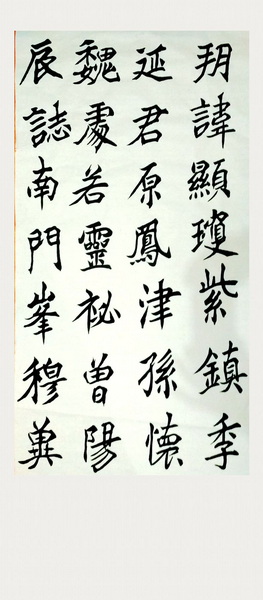 玥諱顯瓊紫鎮季
延君原鳳津孫懷
魏處若靈祕曾陽
辰誌南門峯穆冀